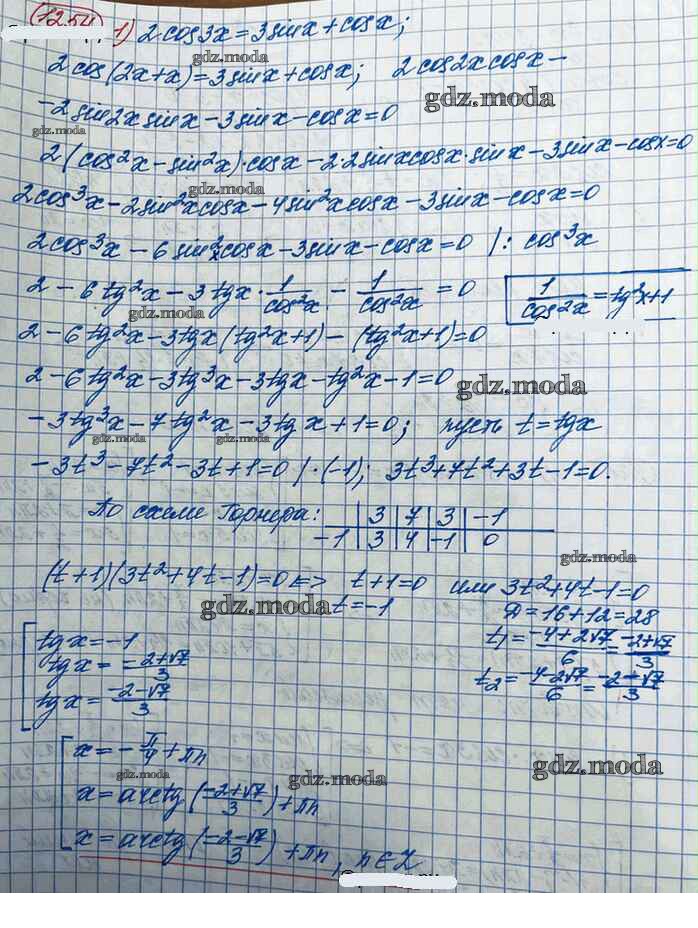 12.54 1) 2cos3x = 3sinx + cosx;
2cos(2x+x) = 3sinx + cosx; 2cos2xcosx –
gdz.moda
– 2sin2xsinx – 3sinx – cosx = 0
2(cos²x – sin²x)·cosx – 2·2sinxcosx·sinx – 3sinx – cosx = 0
2cos³x – 2sin²xcosx – 4sin²xcosx – 3sinx – cosx = 0
2cos³x – 6sin²xcosx – 3sinx – cosx = 0 | : cos³x
2 – 6tg²x – 3tgx · 1/cos²x – 1/cos²x = 0 1/cos²x = tg²x + 1
2 – 6tg²x – 3tgx(tg²x+1) – (tg²x+1) = 0
2 – 6tg²x – 3tg³x – 3tgx – tg²x – 1 = 0
gdz.moda
– 3tg³x – 7tg²x – 3tgx + 1 = 0; пусть t = tgx
– 3t³ – 7t² – 3t + 1 = 0 | ·(-1); 3t³ + 7t² + 3t – 1 = 0.
По схеме Горнера: | 3 | 7 | 3 | -1
-1 | 3 | 4 | -1 | 0
gdz.moda
(t+1)(3t²+4t-1) = 0 <=> t+1=0 или 3t²+4t-1=0
gdz.moda
t = -1 D = 16+12 = 28
tgx = -1 t₁ = (-4+2√7)/6 = (-2+√7)/3
tgx = (-2+√7)/3
tgx = (-2-√7)/3 t₂ = (-4-2√7)/6 = (-2-√7)/3
x = -π/4 + πn
gdz.moda
x = arctg((-2+√7)/3) + πn
x = arctg((-2-√7)/3) + πn, n∈Z